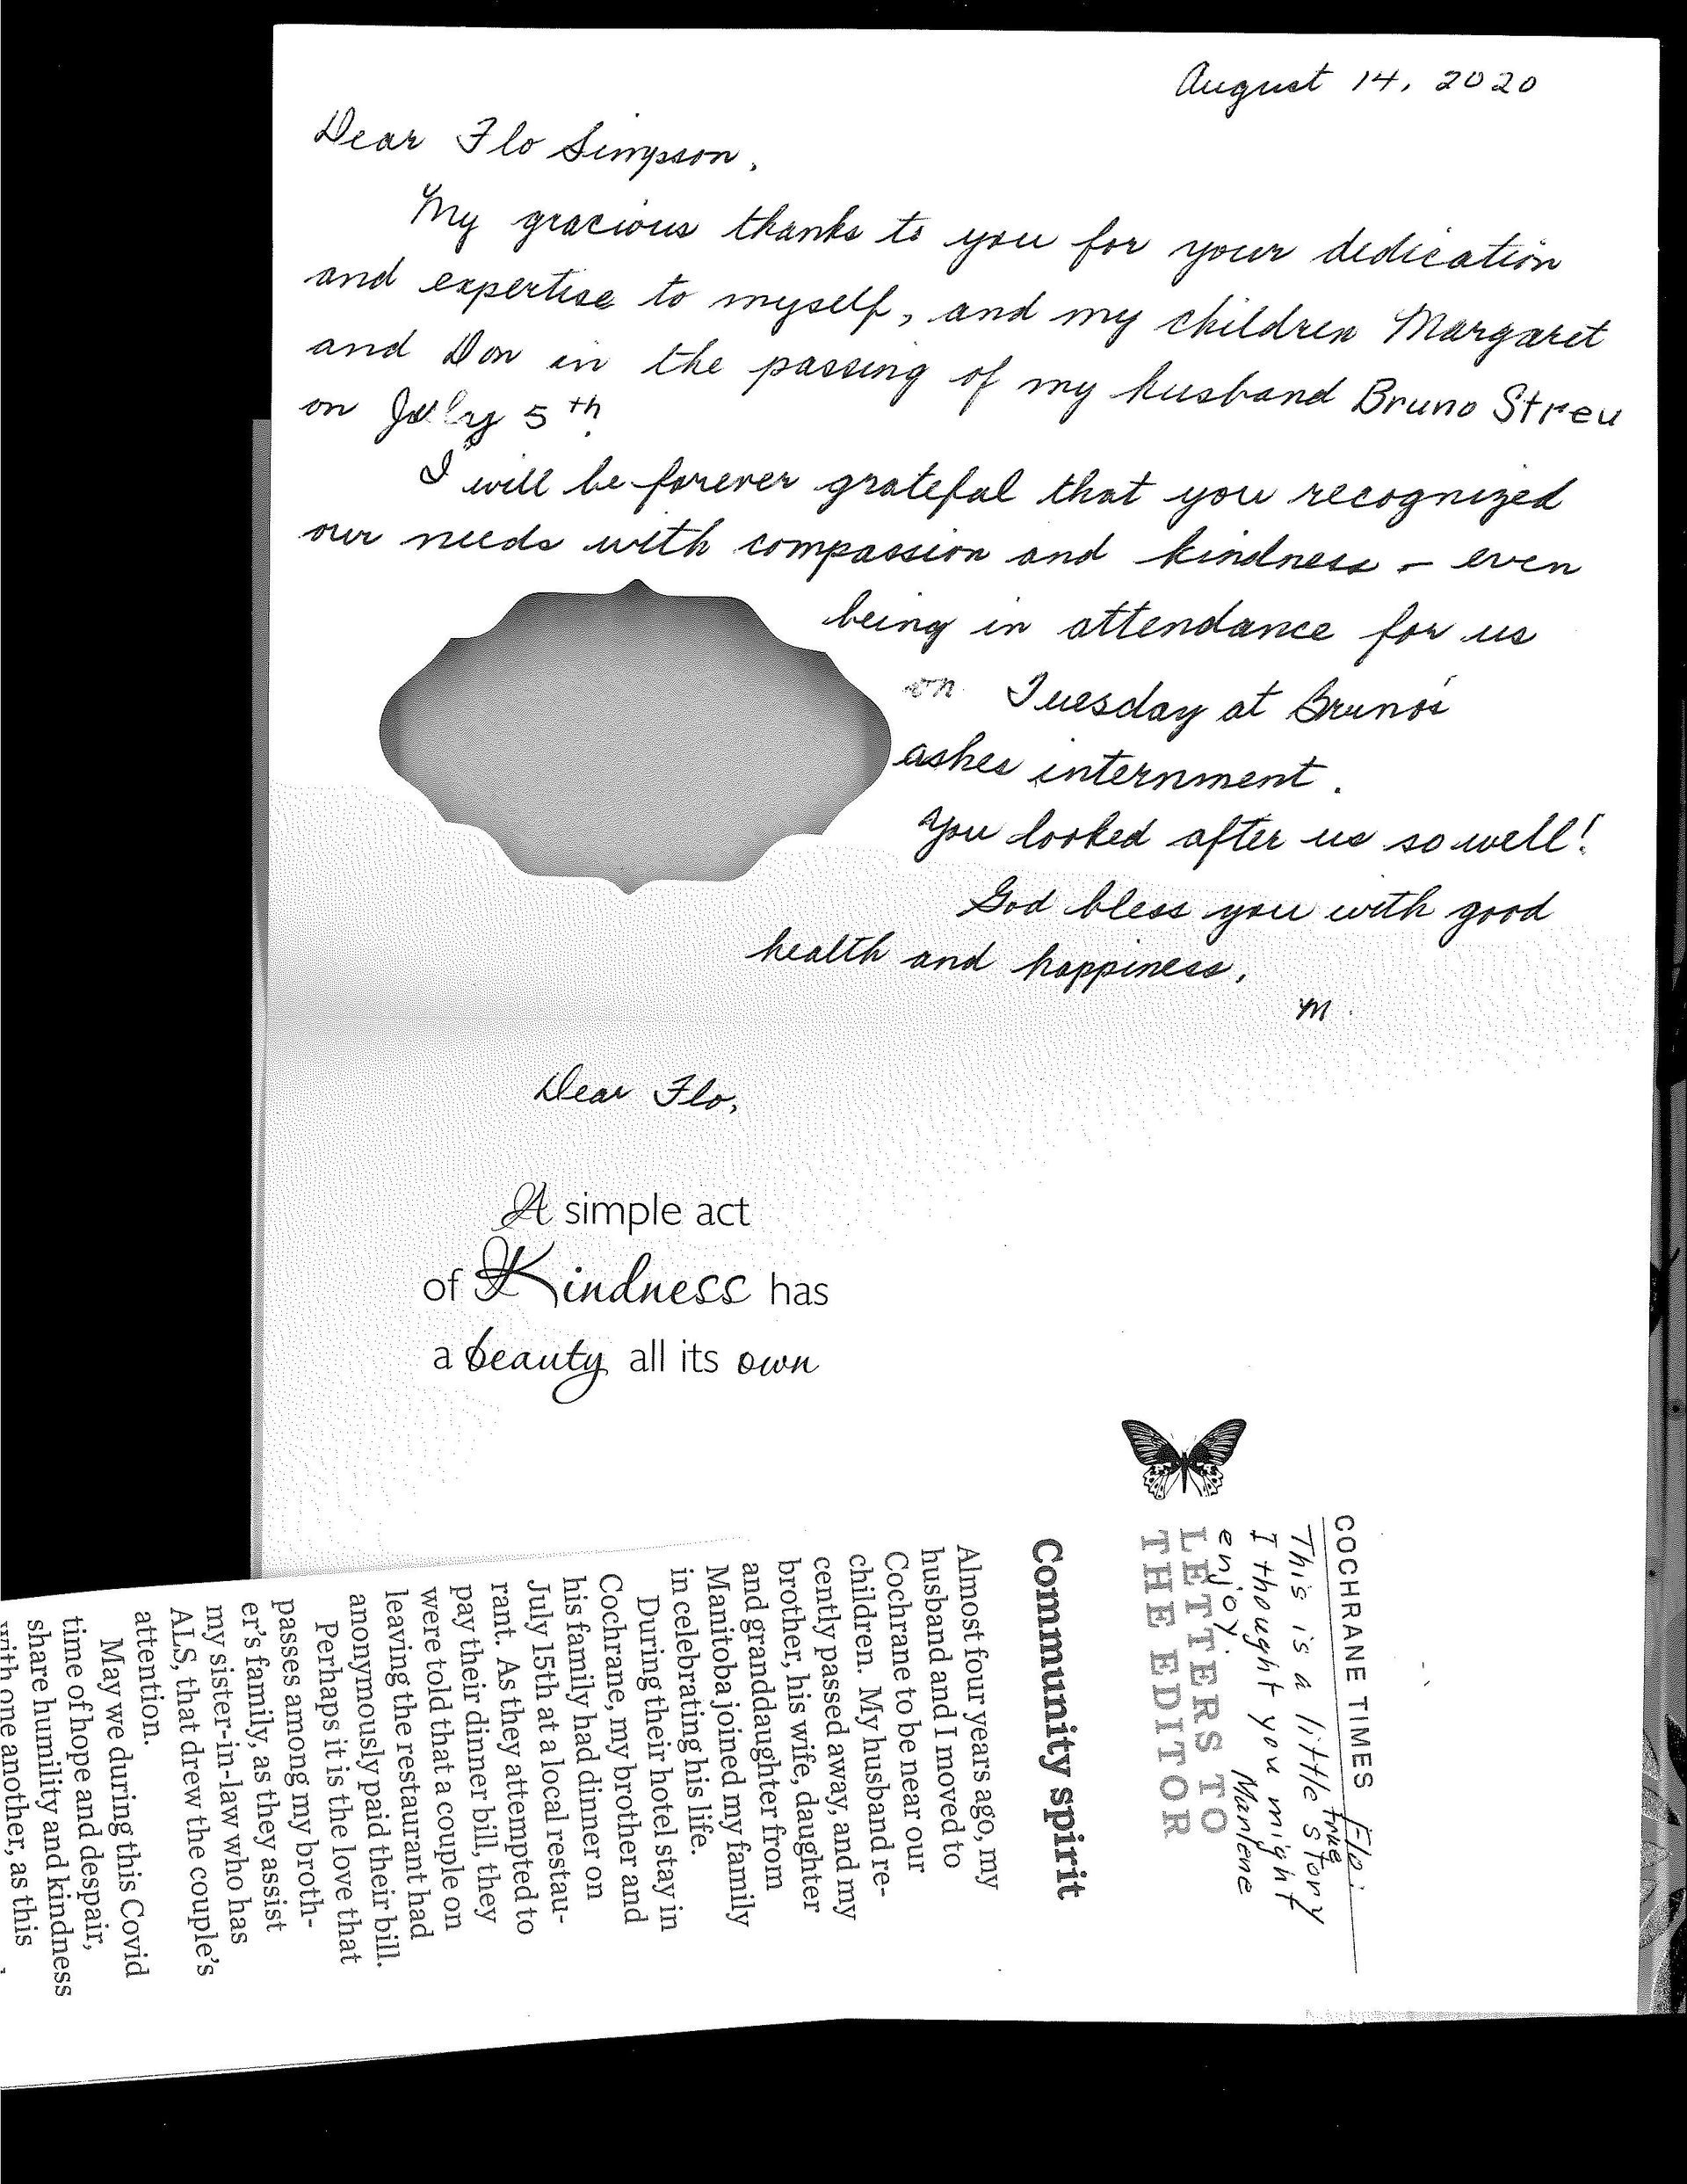 August 14, 2020
Dear Flo Simpson,
My gracious thanks to you for your dedication
and expertise to myself, and my children Margaret
and Don in the passing of my husband Bruno Streu
on July 5th.
I will be forever grateful that you recognized
our needs with compassion and kindness - even
being in attendance for us
on Tuesday at Bruno's
ashes internment.
You looked after us so well!
God bless you with good
health and happiness,
M.
Dear Flo,
A simple act
of Kindness has
a beauty all its own
COCHRANE TIMES
Flo:
This is a little true story
I thought you might
enjoy. Marlene
LETTERS TO
THE EDITOR
Community spirit
Almost four years ago, my
husband and I moved to
Cochrane to be near our
children. My husband re-
cently passed away, and my
brother, his wife, daughter
and granddaughter from
Manitoba joined my family
in celebrating his life.
During their hotel stay in
Cochrane, my brother and
his family had dinner on
July 15th at a local restau-
rant. As they attempted to
pay their dinner bill, they
were told that a couple on
leaving the restaurant had
anonymously paid their bill.
Perhaps it is the love that
passes among my broth-
er's family, as they assist
my sister-in-law who has
ALS, that drew the couple's
attention.
May we during this Covid
time of hope and despair,
share humility and kindness
with one another, as this